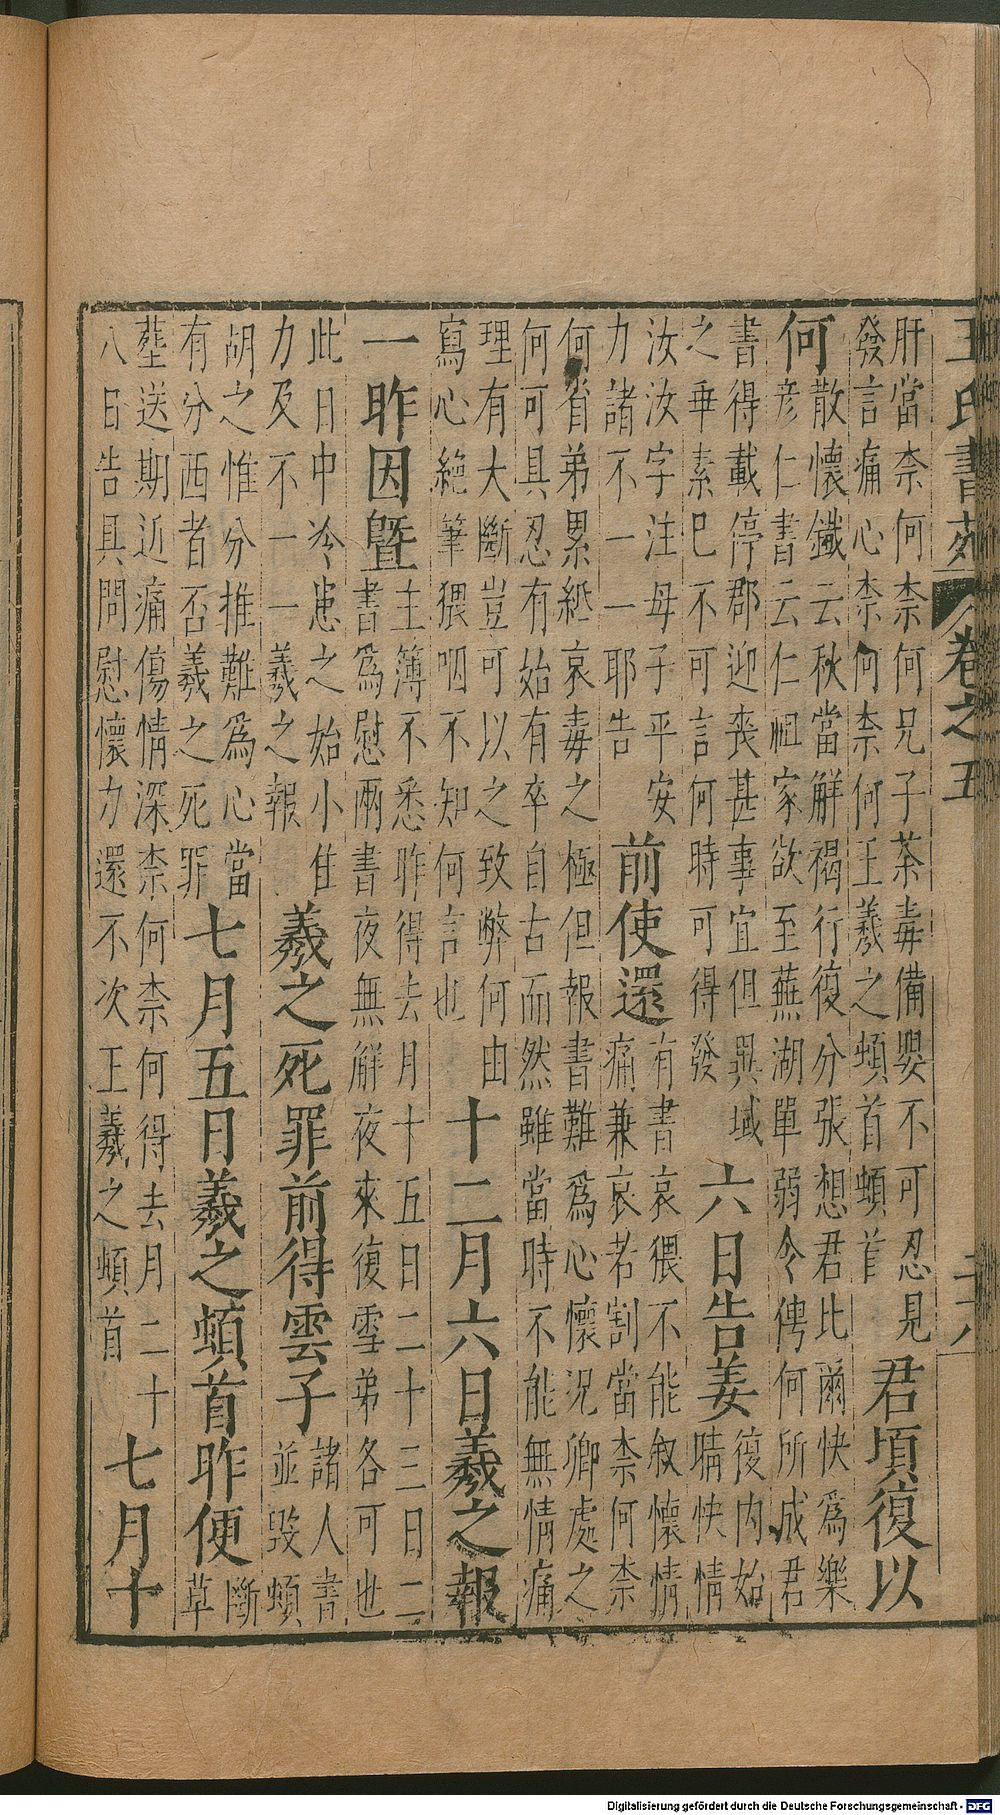 王氏書苑 卷之五
肝當柰何柰何兄子荼毒備嬰不可忍見
發言痛心柰何柰何王羲之頓首頓首
君頃復以
何
散懷鐵云秋當解褐行復分張想君比爾快為樂
彥仁書云仁祖家欲至蕪湖單弱令俜何所成君
書得載停郡迎喪甚事宜但異域
之垂素已不可言何時可得發
六日告姜
復內始
晴快情
汝汝字注母子平安
力諸不一一耶告
前使還
有書哀猥不能叙懷情
痛兼哀若割當柰何柰
何省弟累紙哀毒之極但報書難為心懷況卿處之
何可具忍有始有卒自古而然雖當時不能無情痛
理有大斷豈可以之致弊何由
寫心絕筆猥咽不知何言也
十二月六日羲之報
一昨因暨
主簿不悉昨得去月十五日二十三日二
書為慰兩書夜無解夜來復雪弟各可也
此日中冷患之始小佳
力及不一一羲之報
羲之死罪前得雲子
諸人書
並毀頓
胡之惟分推難為心當
有分西者否羲之死罪
七月五日羲之頓首昨便
斷
草
塟送期近痛傷情深柰何柰何得去月二十
八日告具問慰懷力還不次王羲之頓首
七月十
Digitalisierung gefördert durch die Deutsche Forschungsgemeinschaft - DFG